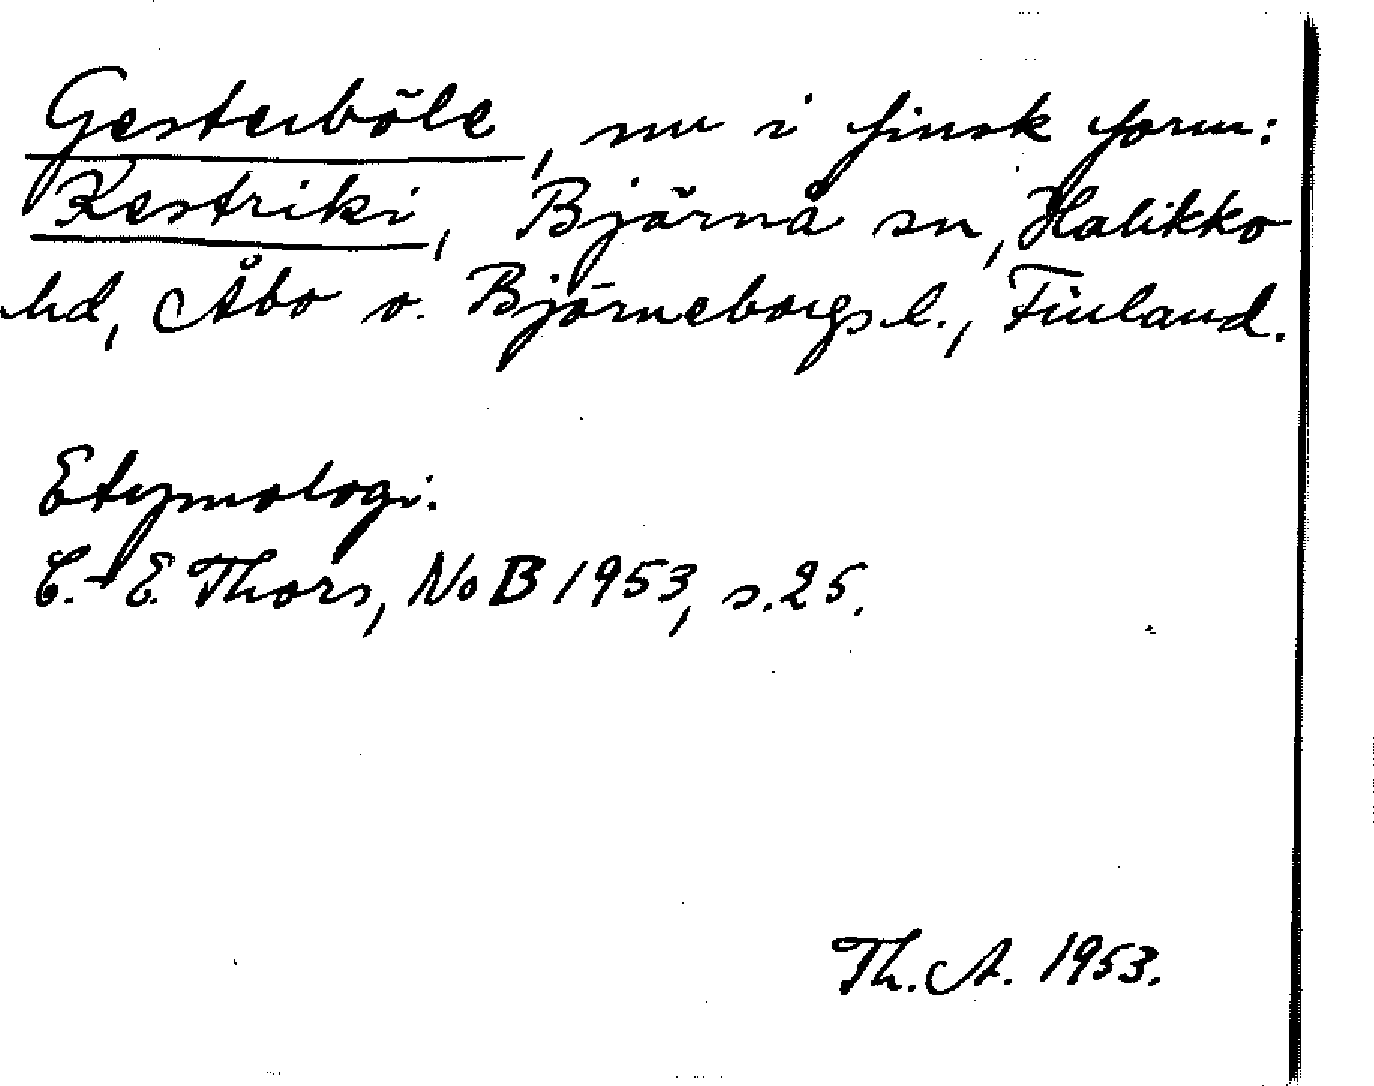 Gesterböle, nu i finsk form:
Kestriki, Bjärnå sn, Halikko
hd, Åbo o. Björneborgs l., Finland.
Etymologi.
C.-E. Thors, NoB 1953, s. 25.
Th. A. 1953.